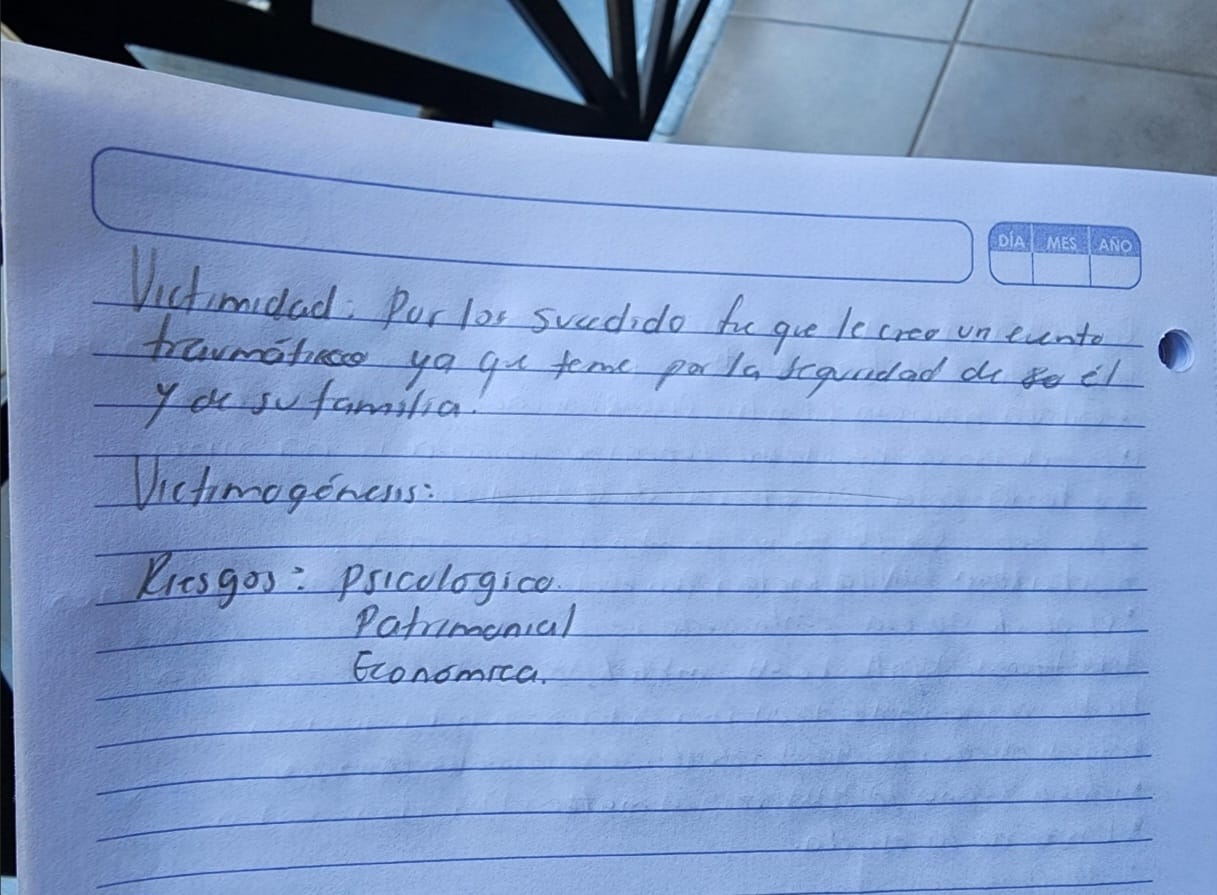 DÍA MES AÑO
Victimidad: Por los sucedido fue que le creo un evento
traumático ya que teme por la seguridad de él
y de su familia.
Victimogénesis:
Riesgos: Psicologico.
Patrimonial
Económica.